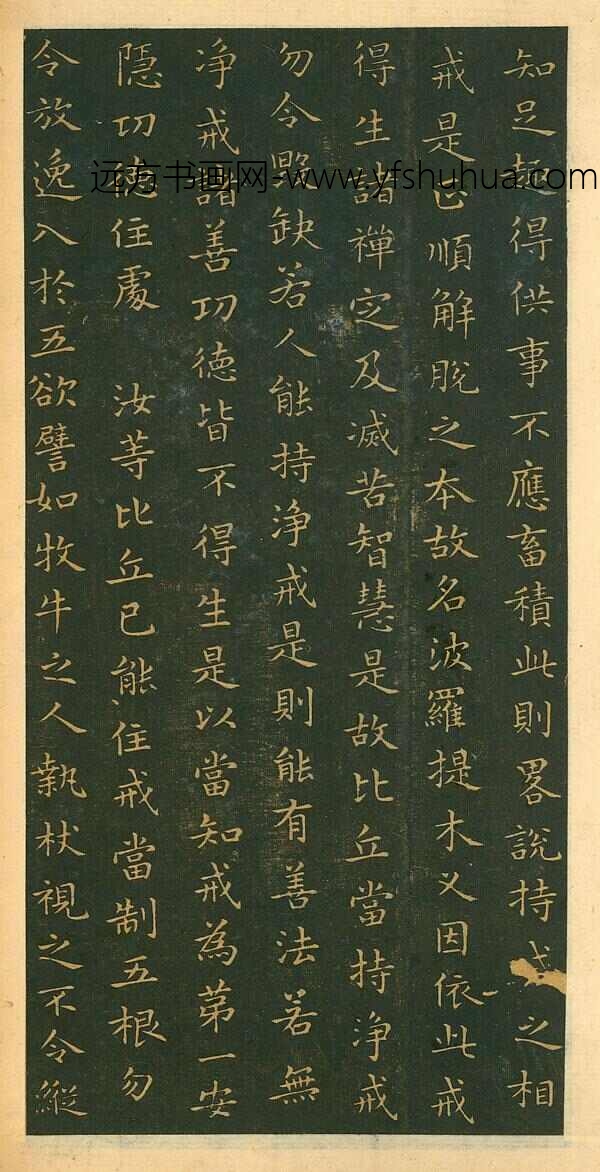 知足趍得供事不應畜積此則畧說持戒之相
戒是正順解脫之本故名波羅提木叉因依此戒
得生諸禪定及滅苦智慧是故比丘當持淨戒
勿令毀缺若人能持淨戒是則能有善法若無
淨戒諸善功德皆不得生是以當知戒為第一安
隱功德住處 汝等比丘已能住戒當制五根勿
令放逸入於五欲譬如牧牛之人執杖視之不令縱
远方书画网-www.yfshuhua.com